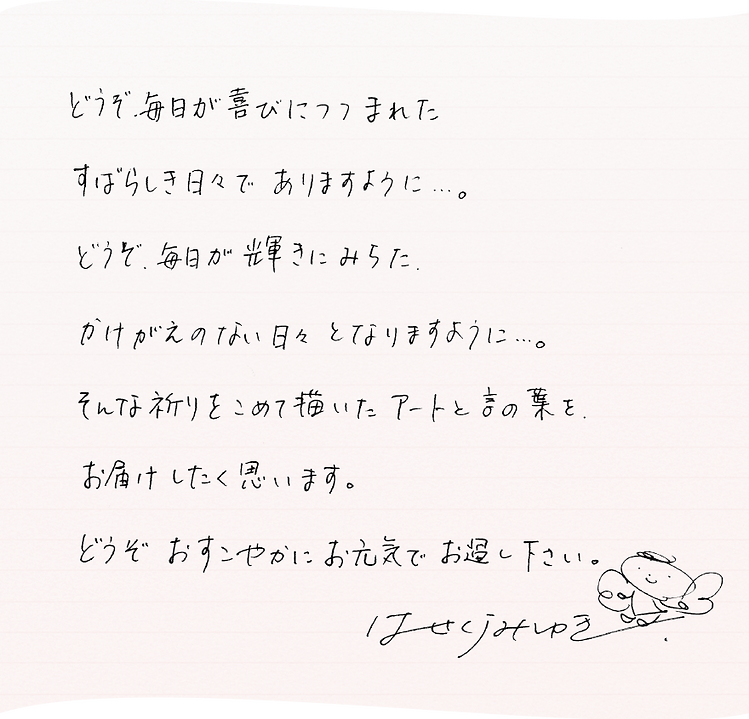 どうぞ、毎日が喜びにつつまれた
すばらしき日々でありますように…。
どうぞ、毎日が輝きにみちた、
かけがえのない日々となりますように…。
そんな祈りをこめて描いたアートと言の葉を、
お届けしたく思います。
どうぞ おすこやかに お元気で お過し下さい。
はせくらみゆき